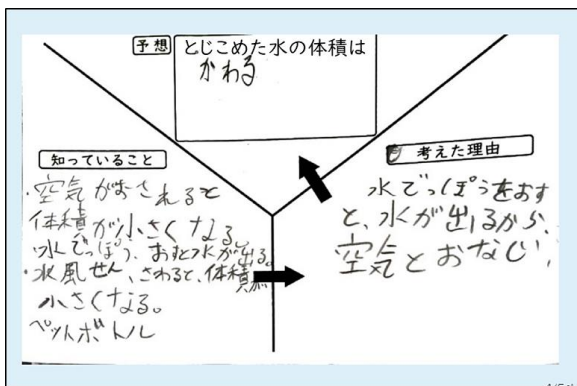 予想
とじこめた水の体積は
かわる
知っていること
・空気がおされると
体積が小さくなる。
・水でっぽう、おすと水が出る。
・水風せん、さわると、体積が
小さくなる。
ペットボトル
考えた理由
水でっぽうをおす
と、水が出るから、
空気とおなじ、